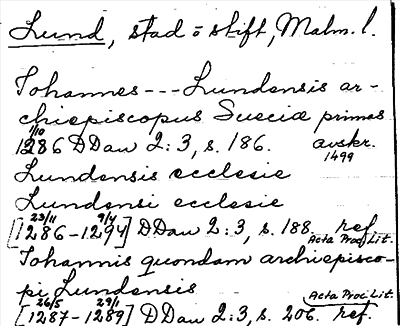 Lund, stad o stift, Malm. l.
Johannes --- Lundensis ar-
chiepiscopus Sueciæ primas
1/10
1286 DDan 2:3, s. 186. avskr.
1499
Lundensis ecclesie
Lundensi ecclesie
23/11 9/4
[1286-1294] DDan 2:3, s. 188. ref
Acta Proc. Lit.
Johannis quondam archiepisco-
pi Lundensis
Acta Proc. Lit.
26/5 29/1
[1287-1289] DDan 2:3, s. 206. ref.